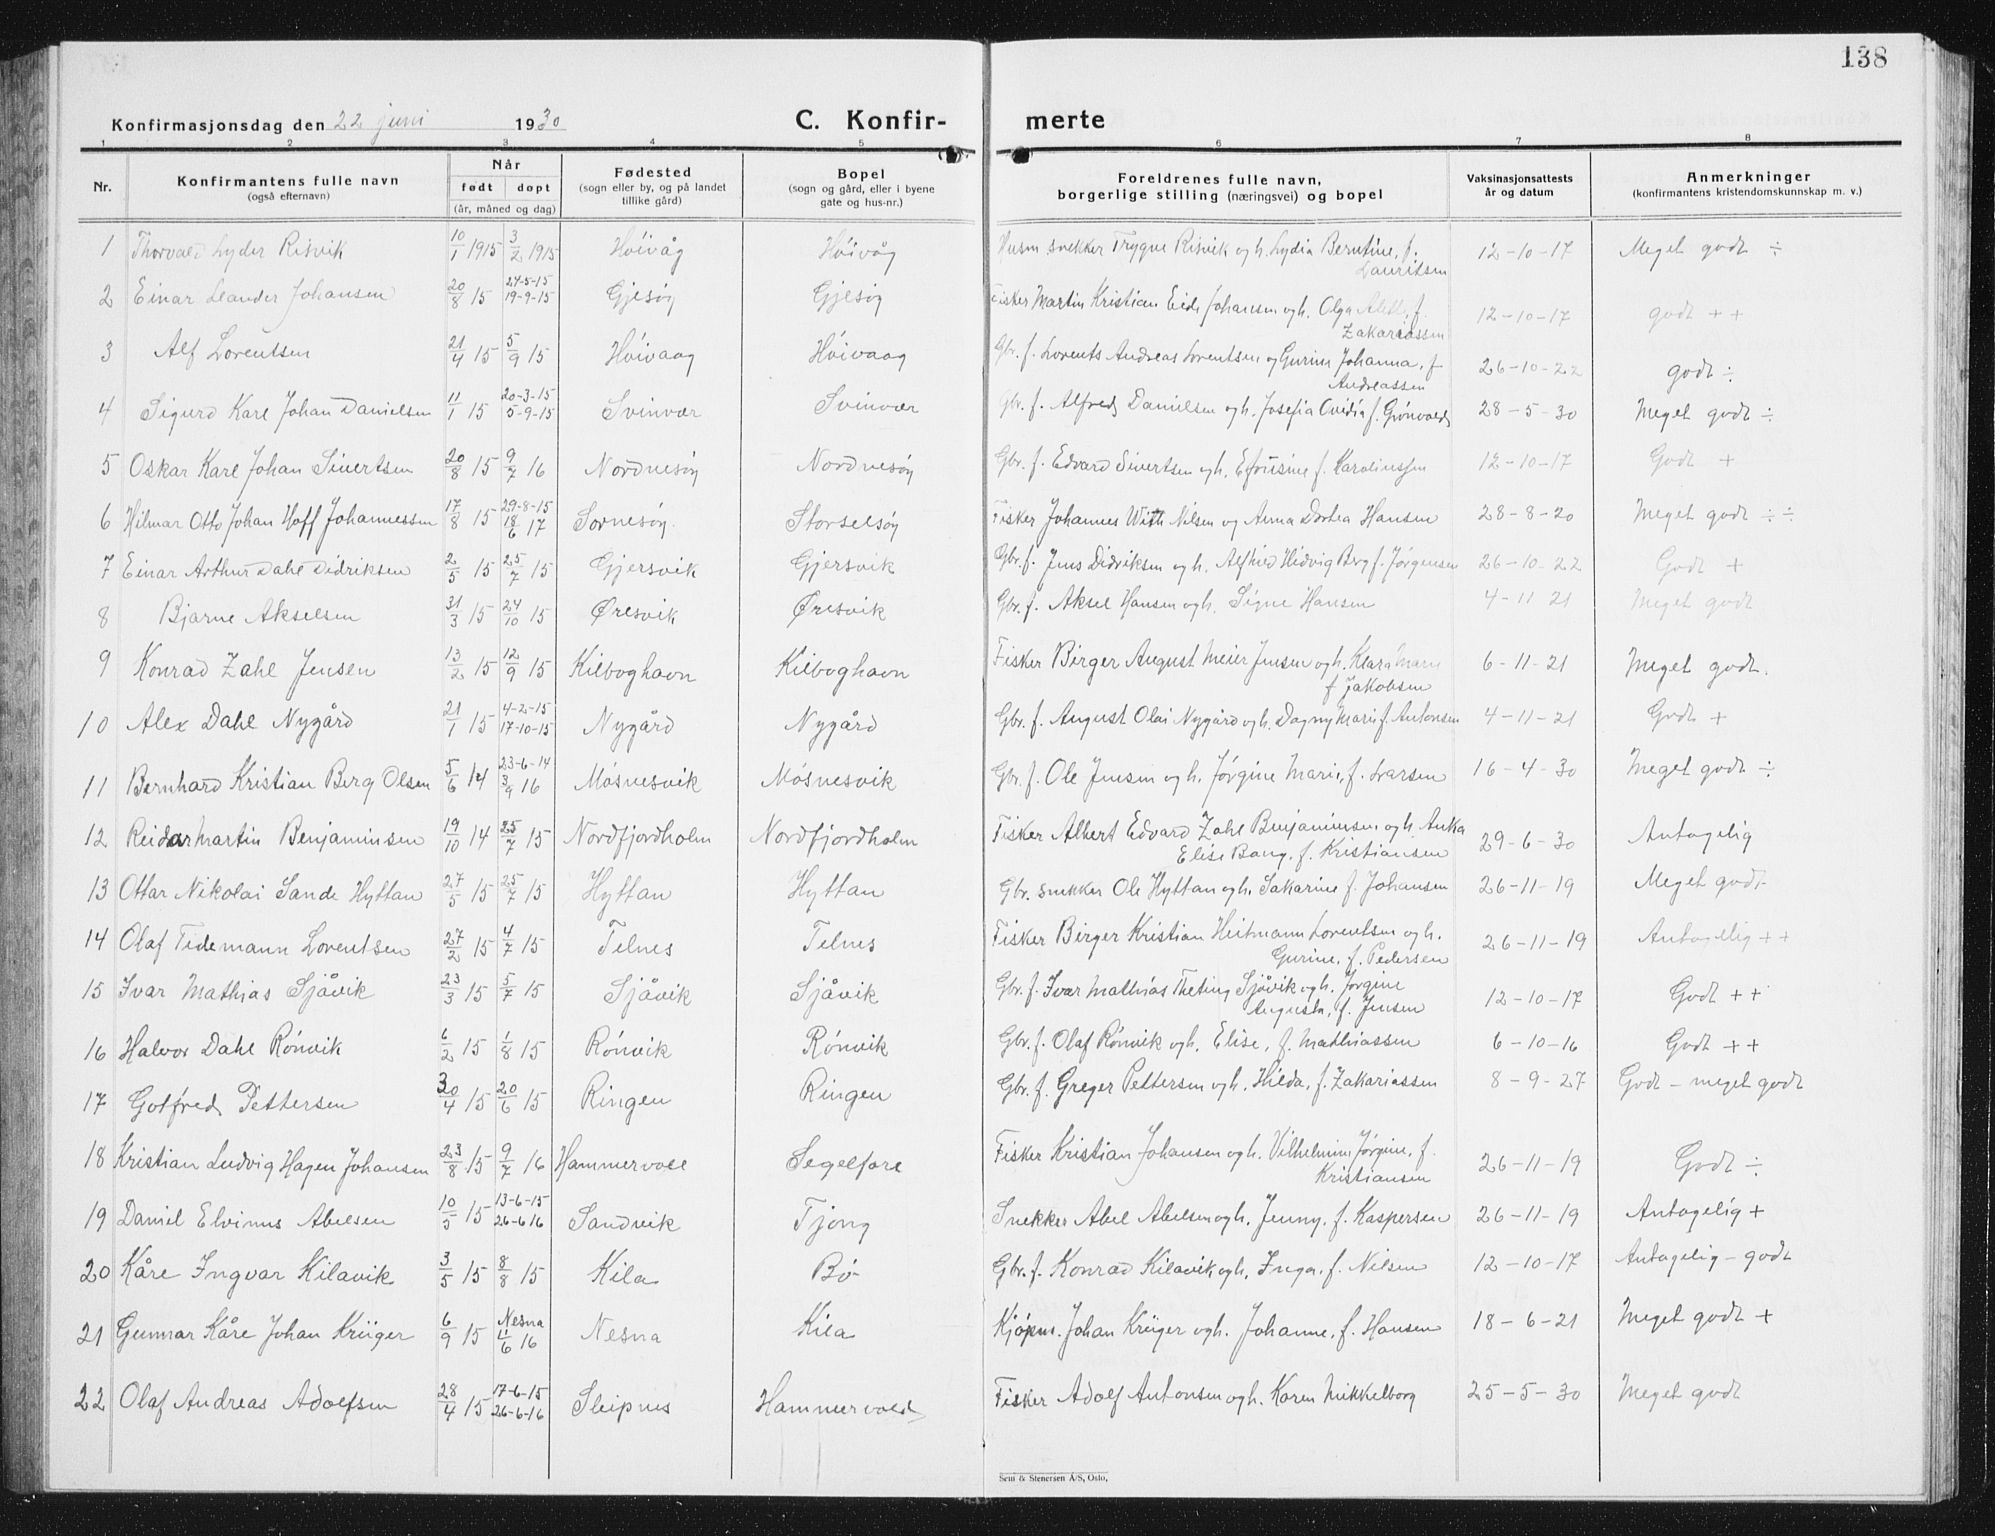 138
Konfirmasjonsdag den 22 juni 1930 C. Konfir- merte
1 2 3 4 5 6 7 8
Nr. Konfirmantens fulle navn (også efternavn) Når født døpt (år, måned og dag) Fødested (sogn eller by, og på landet tillike gård) Bopel (sogn og gård, eller i byene gate og hus-nr.) Foreldrenes fulle navn, borgerlige stilling (næringsvei) og bopel Vaksinasjonsattests år og datum Anmerkninger (konfirmantens kristendomskunnskap m. v.)
1 Thorvald Lyder Risvik 10/1 1915 3/2 1915 Höivåg Höivåg Husm. snekker Trygve Risvik og h. Lydia Berntine, f. Lauritsen 12-10-17 Meget godt ÷
2 Einar Leander Johansen 20/8 15 24-5-15 19-9-15 Gjesöy Gjesöy Fisker Martin Kristian Eide Johansen og h. Olga f. Zakariassen 12-10-17 godt ++
3 Alf Lorentsen 21/4 15 5/9 15 Höivaag Höivaag Gbr. f. Lorents Andreas Lorentsen og Gurine Johanna, f. Andreassen 26-10-22 godt ÷
4 Sigurd Karl Johan Danielsen 11/1 15 20-3-15 5-9-15 Svinvær Svinvær Gbr. f. Alfred Danielsen og h. Josefia Ovidia f. Grönvold 28-5-30 Meget godt ÷
5 Oskar Karl Johan Sivertsen 20/8 15 9/7 16 Nordnesöy Nordnesöy Gbr. f. Edvard Sivertsen og h. Efrusine f. Karoliussen 12-10-17 Godt +
6 Hilmar Otto Johan Hoff Johannessen 17/8 15 29-8-15 18/6 17 Sörnesöy Storselsöy Fisker Johannes With Nilsen og Anna Dortea Hansen 28-8-20 Meget godt ÷ ÷
7 Einar Arthur Dahl Didriksen 2/5 15 25/7 15 Gjersvik Gjersvik Gbr. f. Jens Didriksen og h. Alfhild Hidvig Berg f. Jörgensen 26-10-22 Godt +
8 Bjarne Akselsen 31/3 15 24/10 15 Øresvik Øresvik Gbr. f. Aksel Hansen og h. Signe Hansen 4-11-21 Meget godt
9 Konrad Zahl Jensen 13/2 15 12/9 15 Kilboghavn Kilboghavn Fisker Birger August Meier Jensen og h. Klara Marie f Jakobsen 6-11-21 Meget godt.
10 Alex Dahl Nygård 21/1 15 4-2-15 17-10-15 Nygård Nygård Gbr. f. August Olai Nygård og h. Dagny Marie f. Antonsen 4-11-21 Godt +
11 Bernhard Kristian Berg Olsen 5/6 14 23-6-14 3/9 16 Mösnesvik Mösnesvik Gbr. f. Ole Jensen og h. Jörgine Marie, f. Larsen 16-4-30 Meget godt ÷
12 Reidar Martin Benjaminsen 19/10 14 25/7 15 Nordfjordholm Nordfjordholm Fisker Albert Edvard Zahl Benjaminsen og h. Anka Elise Bang, f. Kristiansen 29-6-30 Antagelig
13 Ottar Nikolai Sande Hyttan 27/5 15 25/7 15 Hyttan Hyttan Gbr. snekker Ole Hyttan og h. Sakarine f. Johansen 26-11-19 Meget godt
14 Olaf Tidemann Lorentsen 27/2 15 4/7 15 Telnes Telnes Fisker Birger Kristian Heitmann Lorentsen og h. Gurine, f. Pedersen 26-11-19 Antagelig ++
15 Ivar Mathias Sjåvik 23/3 15 5/7 15 Sjåvik Sjåvik Gbr. f. Ivar Mathias Theting Sjåvik og h. Jörgine Augusta, f. Jensen 12-10-17 Godt ++
16 Halvor Dahl Rönvik 6/2 15 1/8 15 Rönvik Rönvik Gbr. f. Olaf Rönvik og h. Elise, f. Mathiassen 6-10-16 Godt ++
17 Gotfred Pettersen 30/4 15 20/6 15 Ringen Ringen Gbr. f. Greger Pettersen og h. Hilda, f. Zakariassen 8-9-27 Godt - meget godt
18 Kristian Ludvig Hagen Johansen 23/8 15 9/7 16 Hammervoll Segelfore Fisker Kristian Johansen og h. Vilhelmine Jörgine, f. Kristiansen 26-11-19 Godt ÷
19 Daniel Elvinus Abelsen 10/5 15 13-6-15 26-6 16 Sandvik Tjong Snekker Abel Abelsen og h. Jenny, f. Kaspersen 26-11-19 Antagelig +
20 Kåre Ingvar Kilavik 3/5 15 8/8 15 Kila Bö Gbr. f. Konrad Kilavik og h. Inga, f. Nilsen 12-10-17 Antagelig - godt
21 Gunnar Kåre Johan Krüger 6/9 15 Nesna 11/6 16 Nesna Kila Kjöpm. Johan Krüger og h. Johanne, f. Hansen 18-6-21 Meget godt +
22 Olaf Andreas Adolfsen 28/4 15 17-6-15 26-6-16 Sleipnes Hammervold Fisker Adolf Antonsen og h. Karen Mikkelborg 25-5-30 Meget godt
Sem & Stenersen A/S, Oslo.